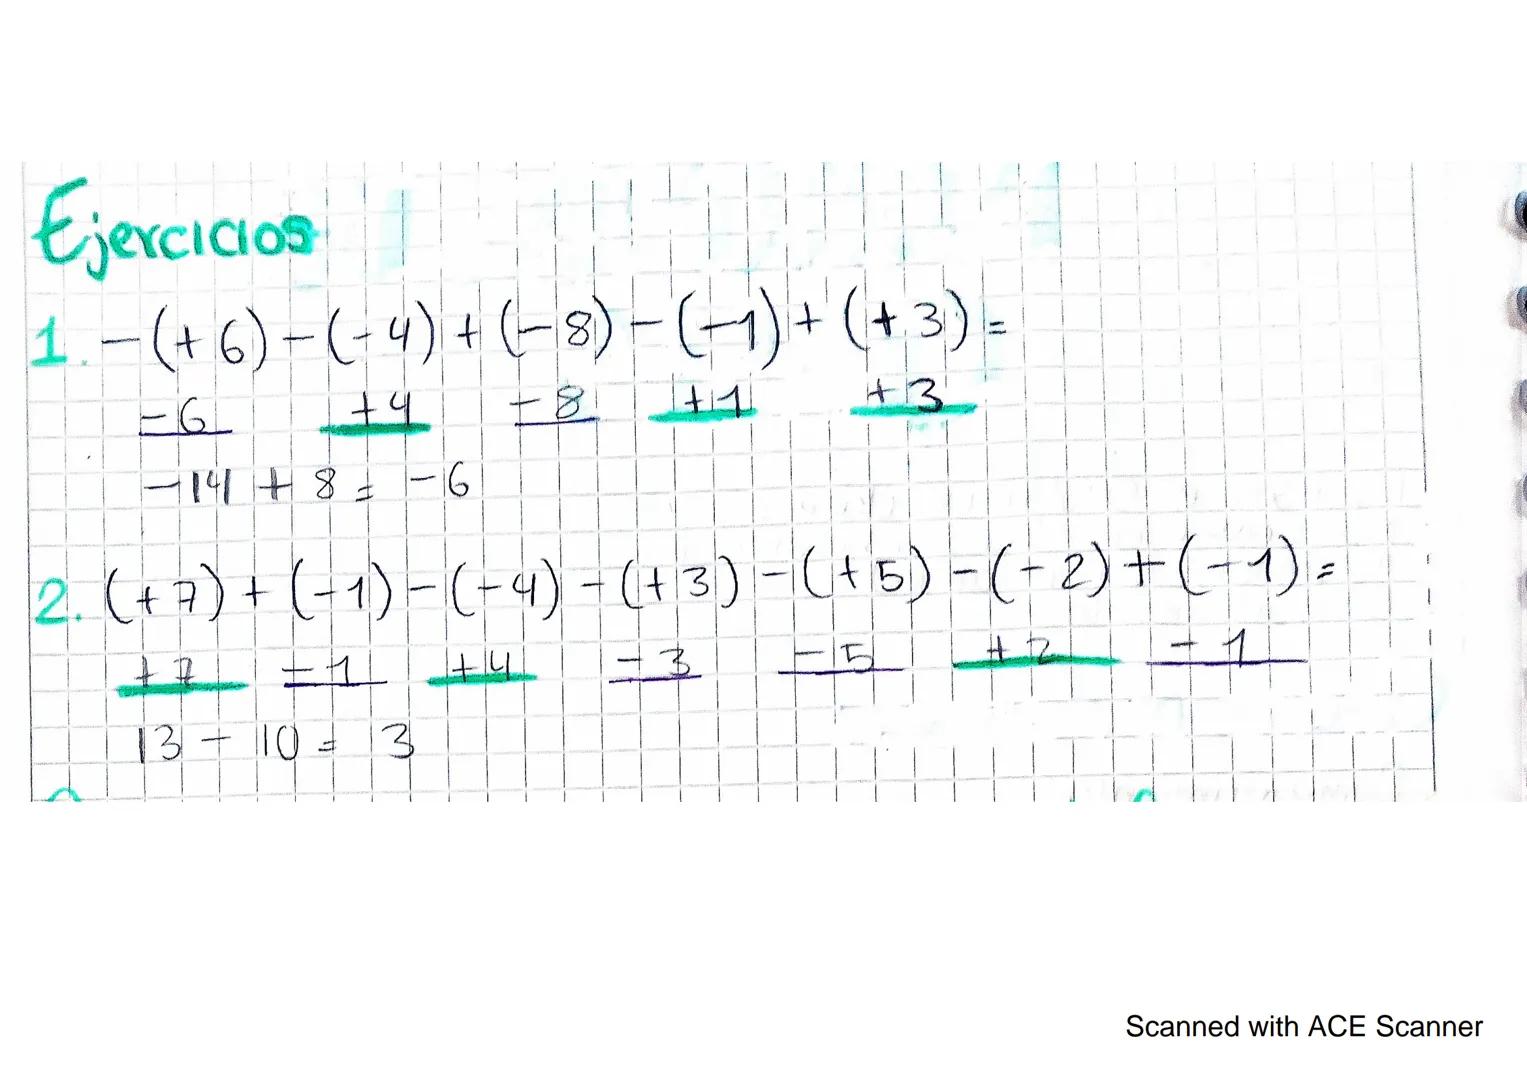 Ejercicios
1. -(+6)-(-4)+(-8)-(-1)+(+3)=
-6 +4 -8 +1 +3
-14 + 8 = -6
2. (+7)+(-1)-(-4)-(+3)-(+5)-(-2)+(-1)=
+7 -1 +4 -3 -5 +2 -1
13 - 10 = 3
Scanned with ACE Scanner